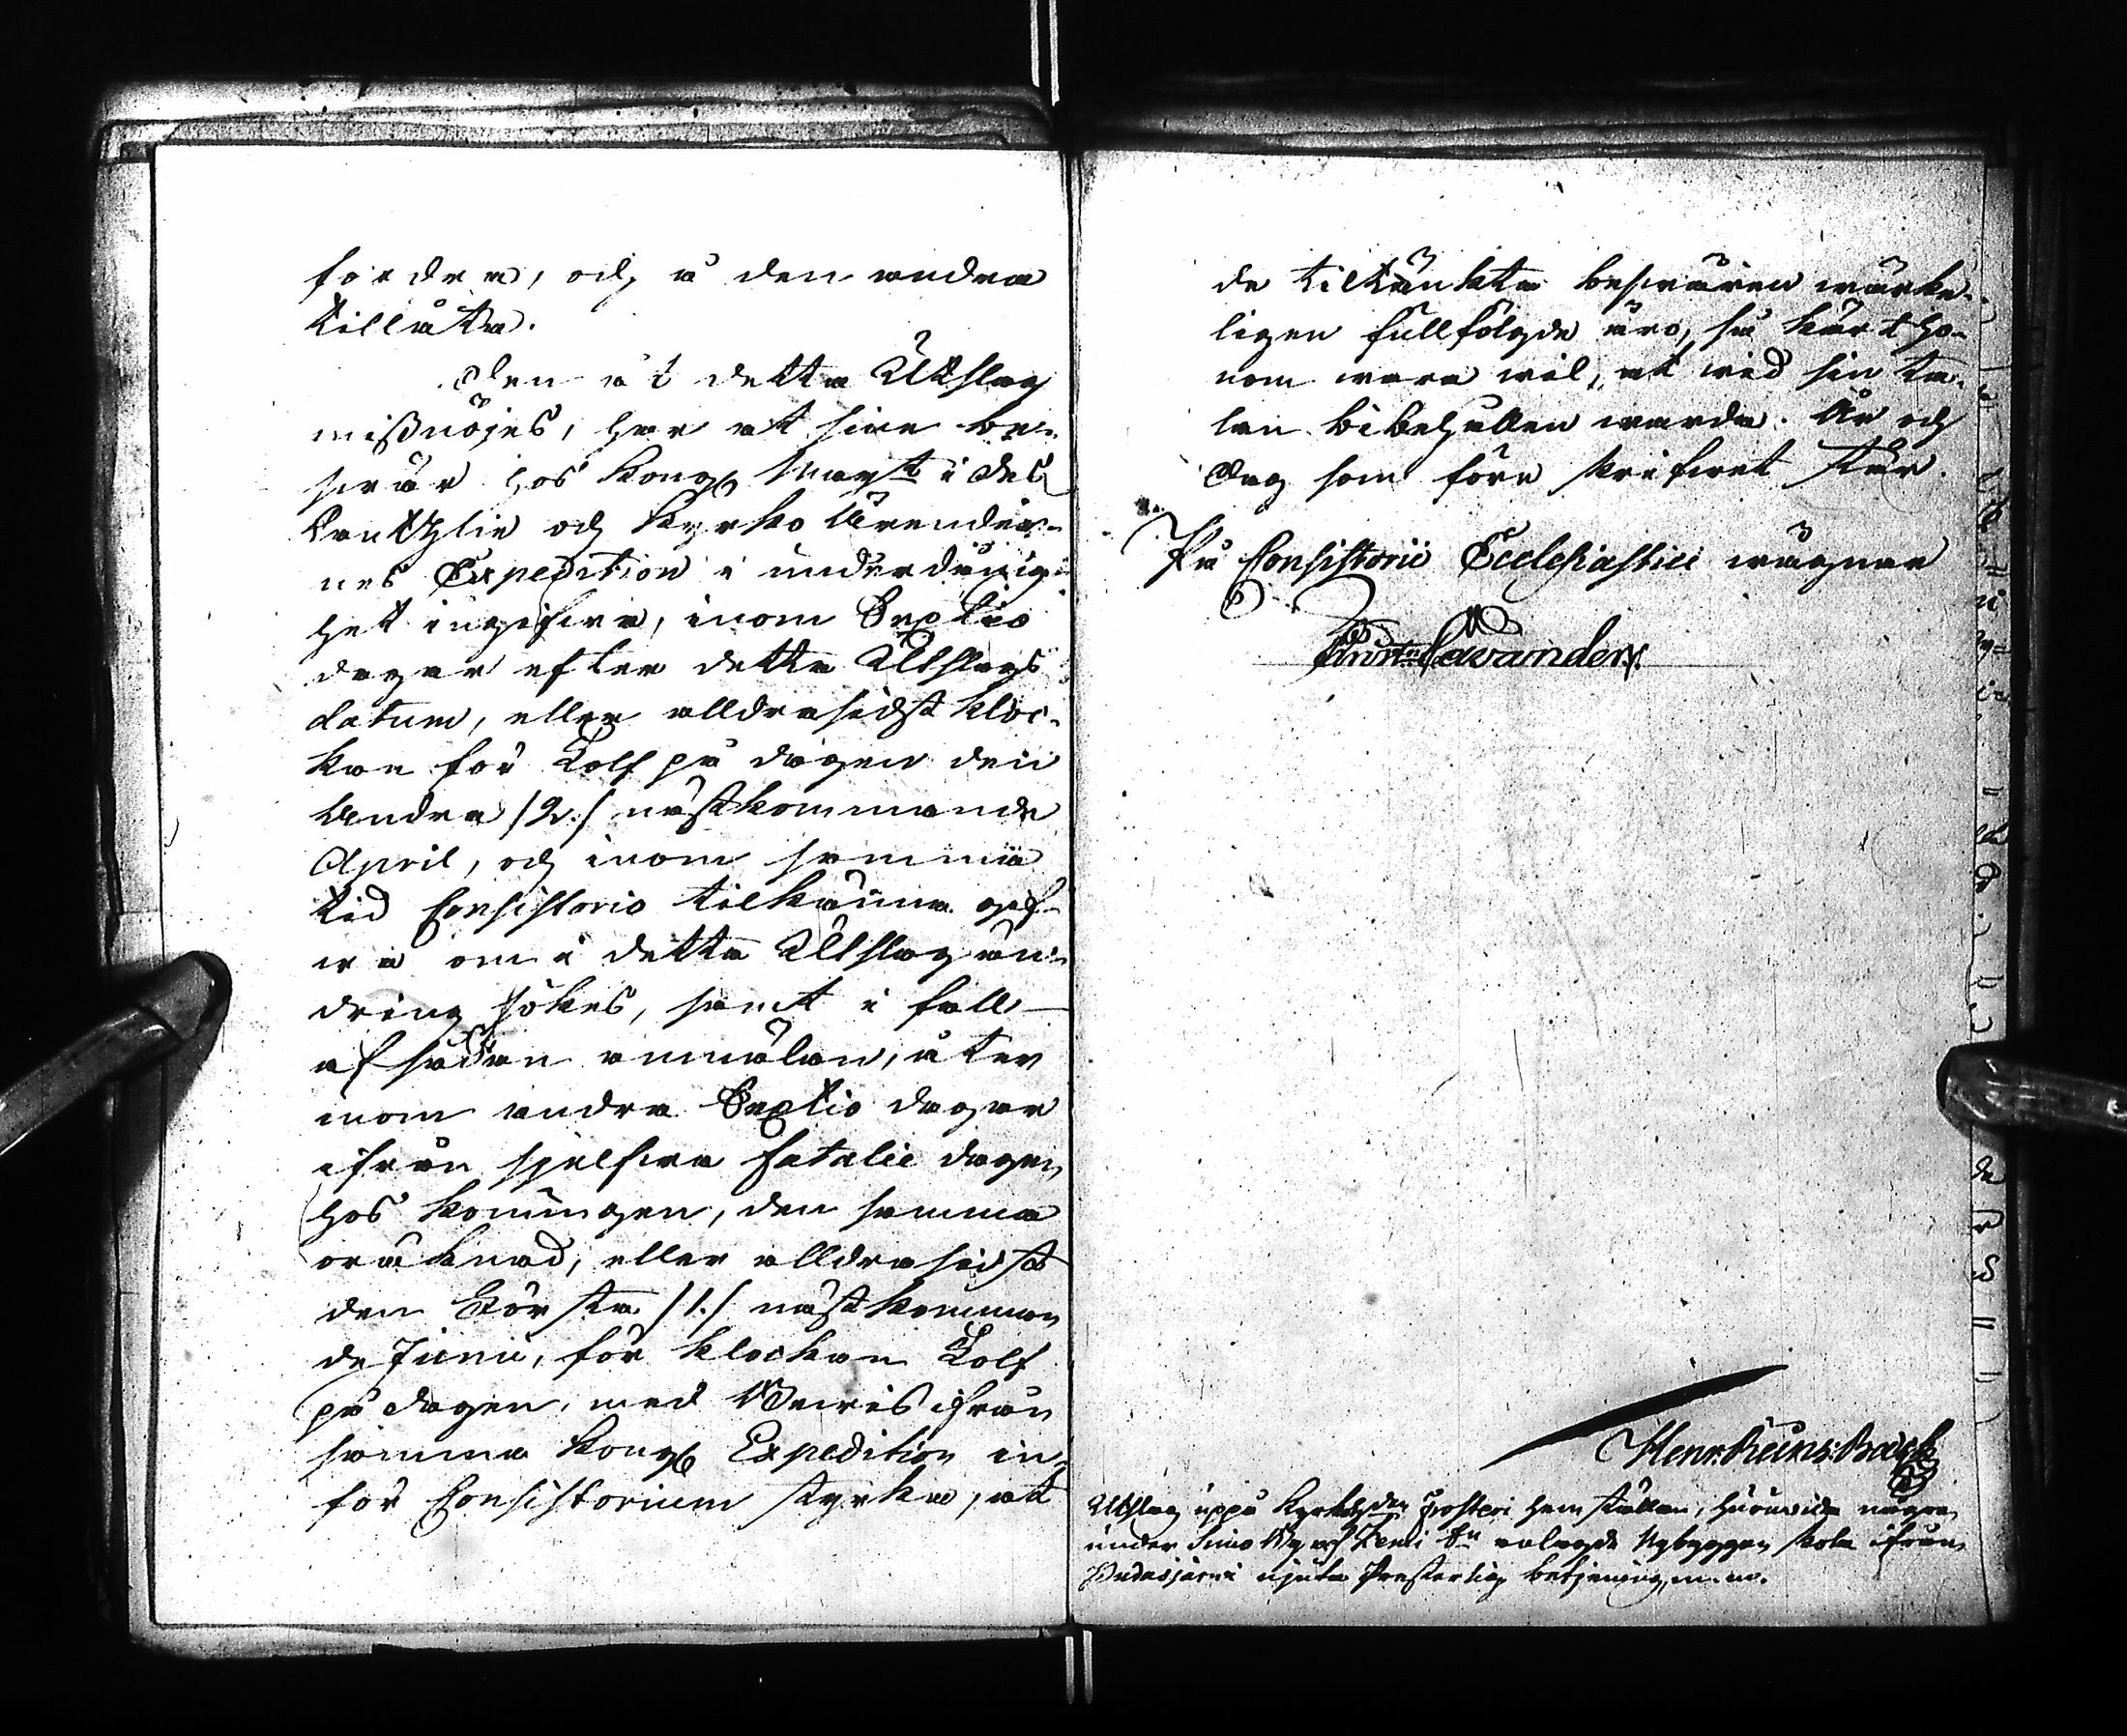 fordra, och å den andra
tillåta.
Den åt detta Utslag
mißnöjes, har at sine be-
swär hos Kongl Mayt i des
Cantzlie och Kyrko Ärender-
nes Expedition i underdånig-
het ingifwa, inom Sextio
dagar efter detta Utslags
datum, eller alldrasidst kloc-
kan för Tolf på dagen den
Andra /2./ nästkommande
April, och inom samma
tid Consistorio tilkänna gif-
wa om i detta Utslag än-
dring sökes, samt i fall
af sådan anmälan, åter
inom andra Sextio dagar
ifrån sjelfwa fatalie dagen
hos Konungen, den samma
oräknad, eller alldrasidst
den Första /1./ nästkomman
de Junii, för klockan Tolf
på dagen, med Bewis ifrån
samma Kongl Expedition in-
för Consistorium styrka, at
de tiltänkta beswären wärke-
ligen fullfölgde äro, så kärt ho-
nom wara wil, at wid sin ta-
lan bibehållen warda. År och
dag som förr skrifwet står.
På Consistorii Ecclesiastici wägnar
Henr: Reinh: Back
Utslag uppå hemställan, huruwida några
under Simo By af Kemi Sn anlagde Nybyggen skola ifrån
Pudasjärwi njuta Presterlig betjening m. m.